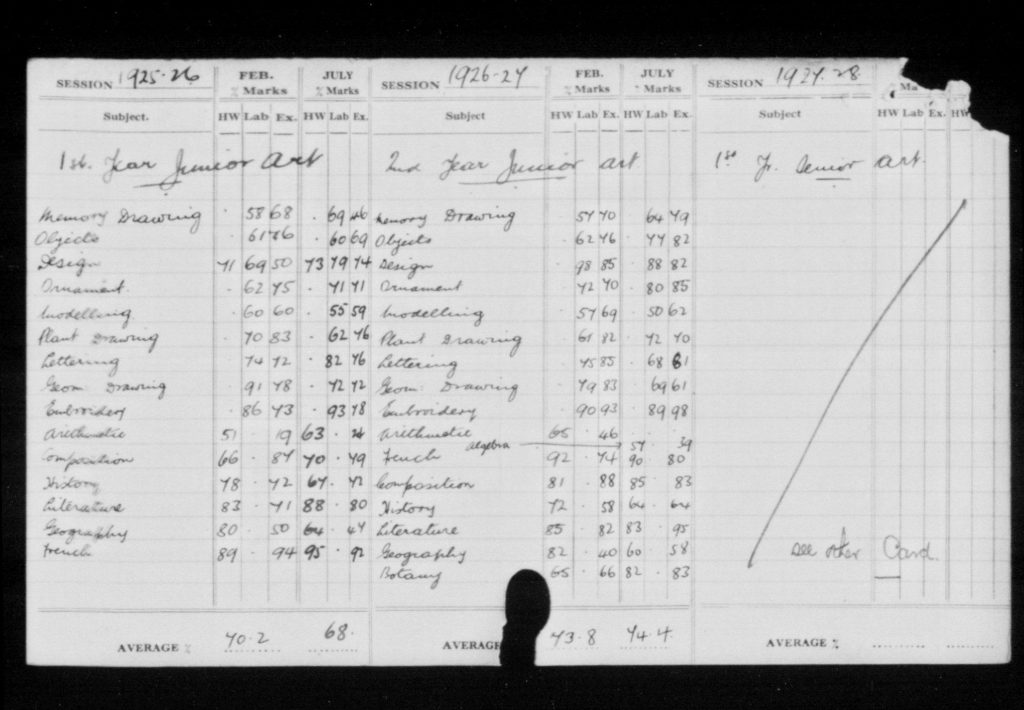 SESSION 1925-26 FEB. % Marks JULY % Marks
Subject. HW Lab Ex. HW Lab Ex.
1st. Year Junior Art
Memory Drawing . 58 68 . 69 46
Objects . 61 76 . 60 69
Design 71 69 50 73 79 74
Ornament . 62 75 . 71 71
Modelling . 60 60 . 55 59
Plant Drawing . 70 83 . 62 76
Lettering . 74 72 . 82 76
Geom. Drawing . 91 78 . 72 72
Embroidery . 86 73 . 93 78
Arithmetic 51 . 19 63 .
Composition 66 . 87 70 . 79
History 78 . 72 67 . 72
Literature 83 . 71 88 . 80
Geography 80 . 50 64 . 47
French 89 . 94 95 . 92
AVERAGE % 70.2 68.
SESSION 1926-27 FEB. % Marks JULY % Marks
Subject HW Lab Ex. HW Lab Ex.
2nd Year Junior Art
Memory Drawing 57 70 64 79
Objects 62 76 . 77 82
Design 98 85 88 82
Ornament 72 70 . 80 85
Modelling 57 69 . 50 62
Plant Drawing 61 82 . 72 70
Lettering 75 85 . 68 61
Geom. Drawing 79 83 69 61
Embroidery 90 93 . 89 98
Arithmetic 65 . 46
Algebra 57 . 39
French 92 . 74 90 . 80
Composition 81 . 88 85 . 83
History 72 . 58 64 . 64
Literature 85 . 82 83 . 95
Geography 82 . 40 60 . 58
Botany 65 . 66 82 . 83
AVERAGE 73.8 74.4.
SESSION 1927-28 Ma
Subject HW Lab Ex. HW
1st Yr. Senior Art.
See other Card.
AVERAGE %